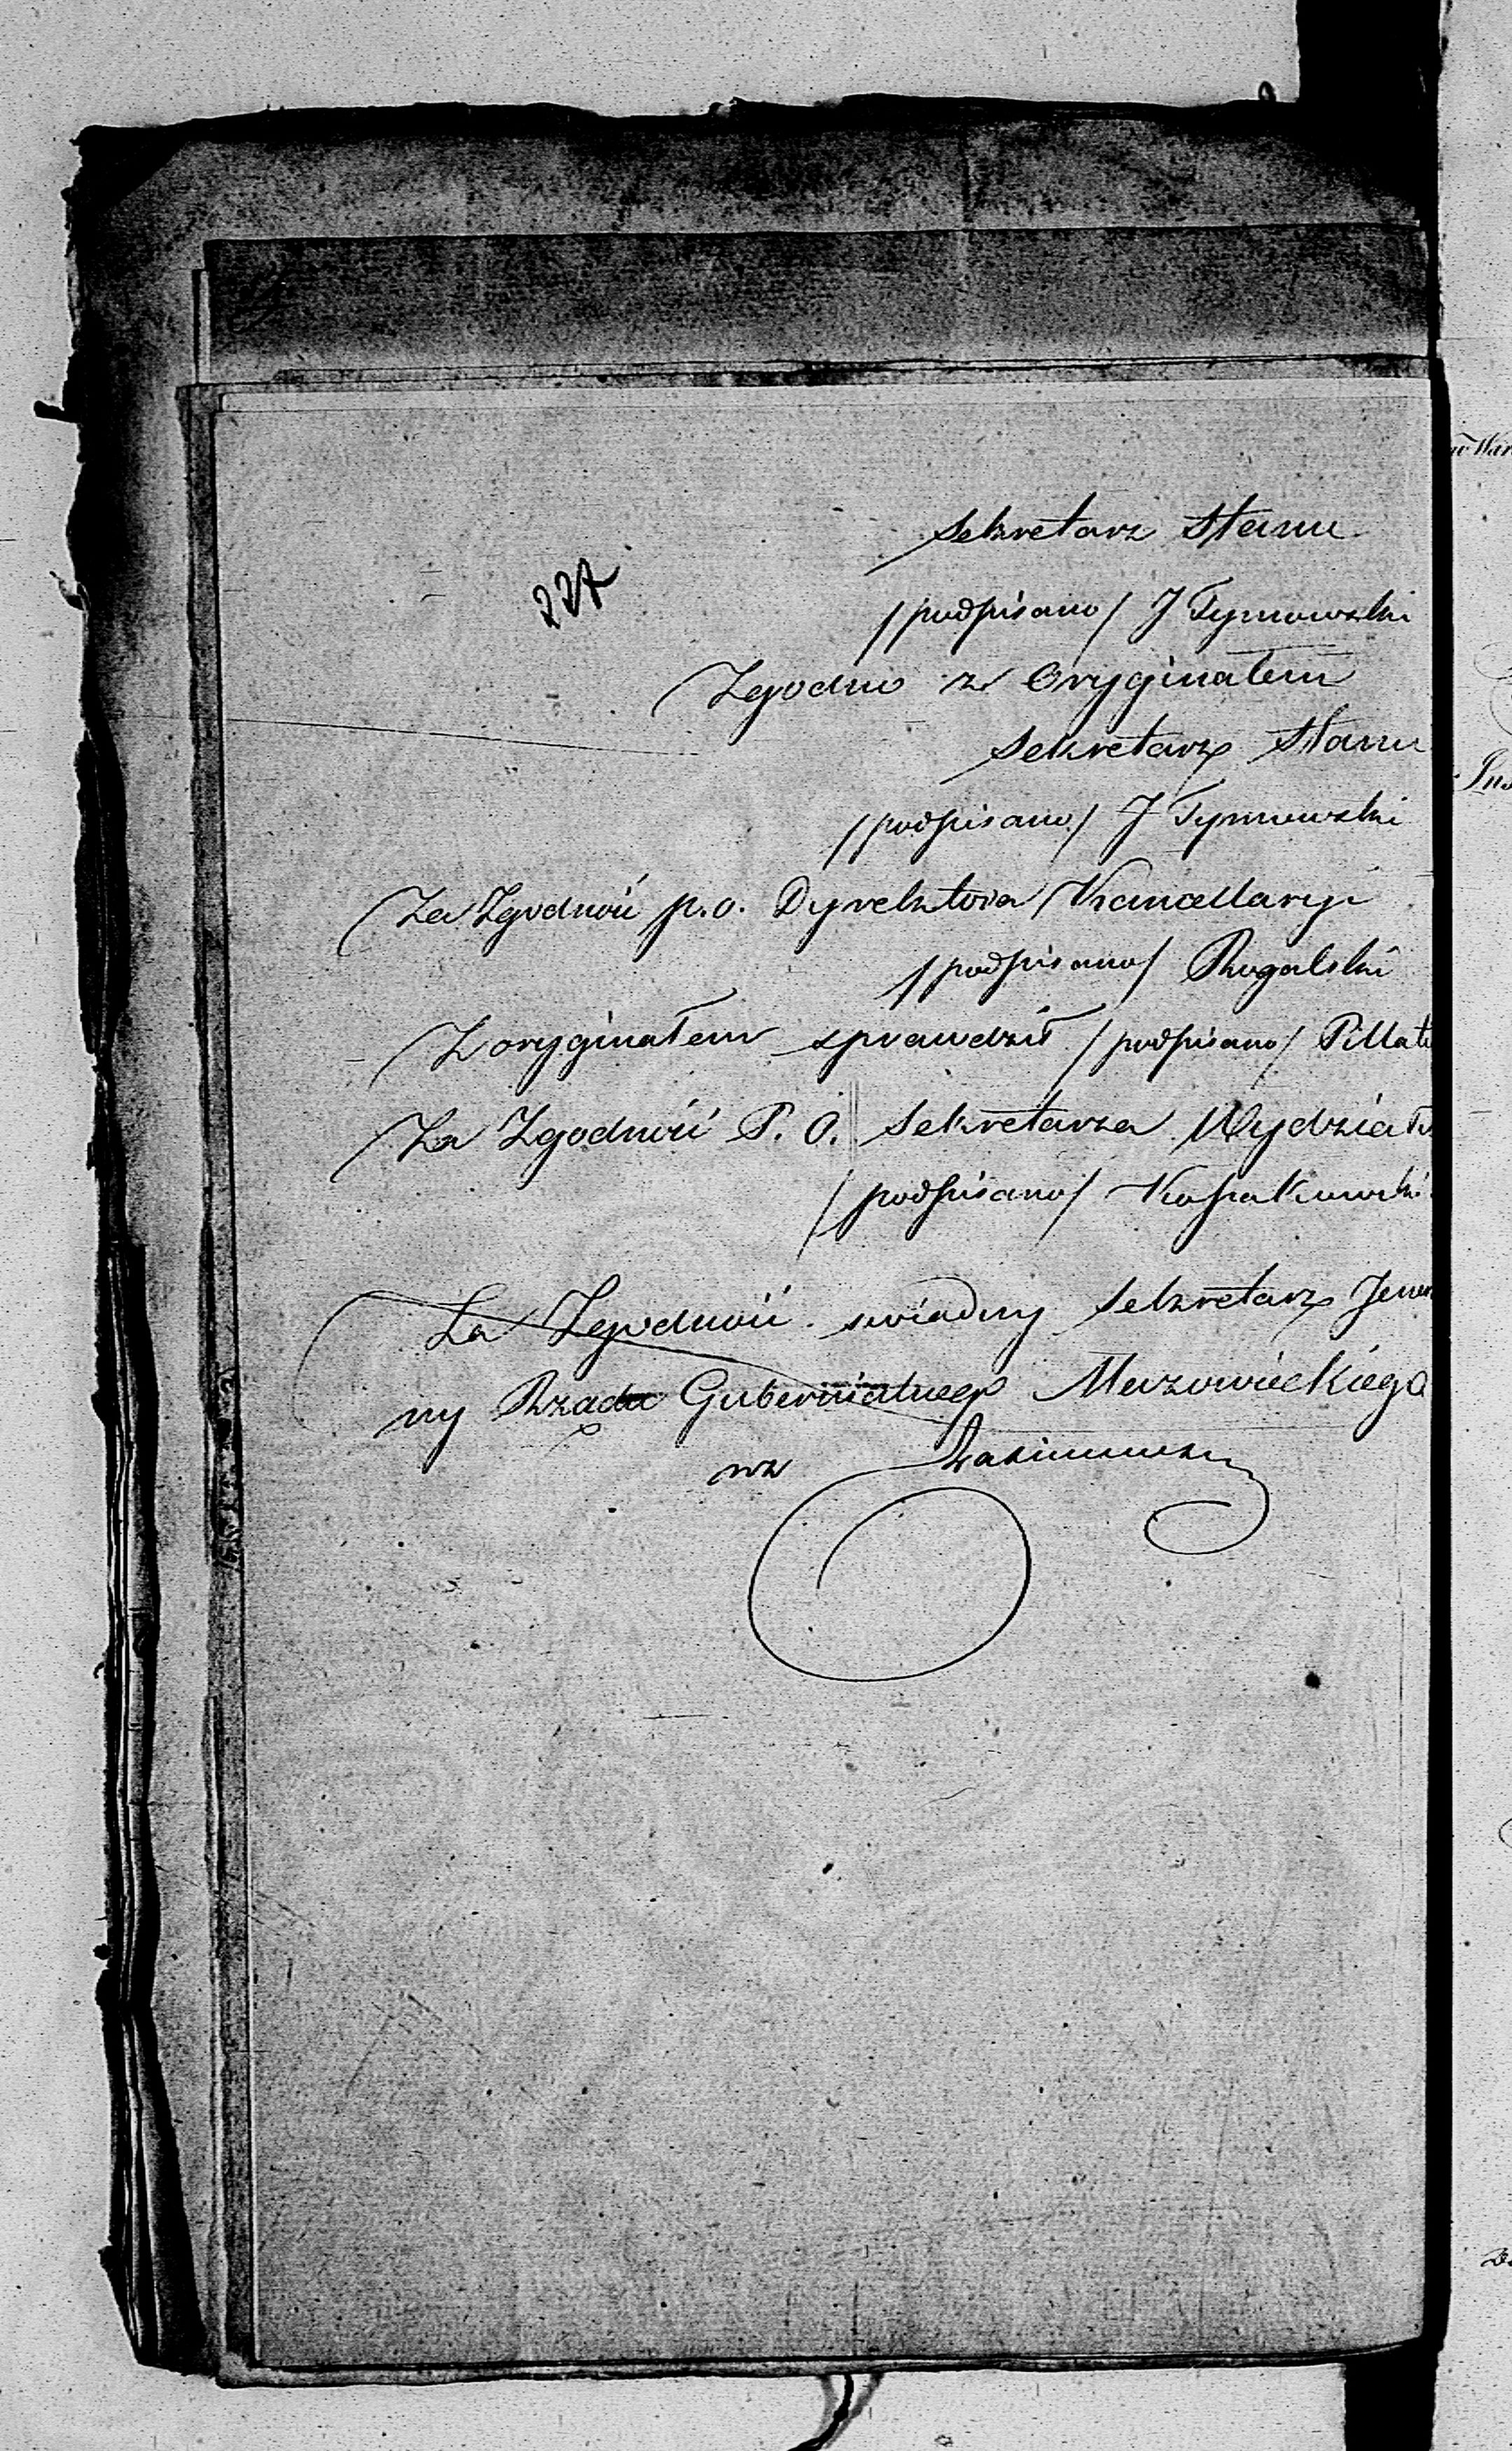 227
Sekretarz Stanu
/podpisano/ J Tymowski
Zgodno z Oryginałem
Sekretarz Stanu
/podpisano/ J Tymowski
Za Zgodność p.o. Dyrektora Kancellaryi
/podpisano/ Rogalski
Z oryginałem sprawdził /podpisano/ Pillati
Za Zgodność P. O. Sekretarza Wydziału
/podpisano/ Kossakowski
Za Zgodność świadczy Sekretarz Jener
ny Rządu Gubernialnego Mazowieckiego
wz